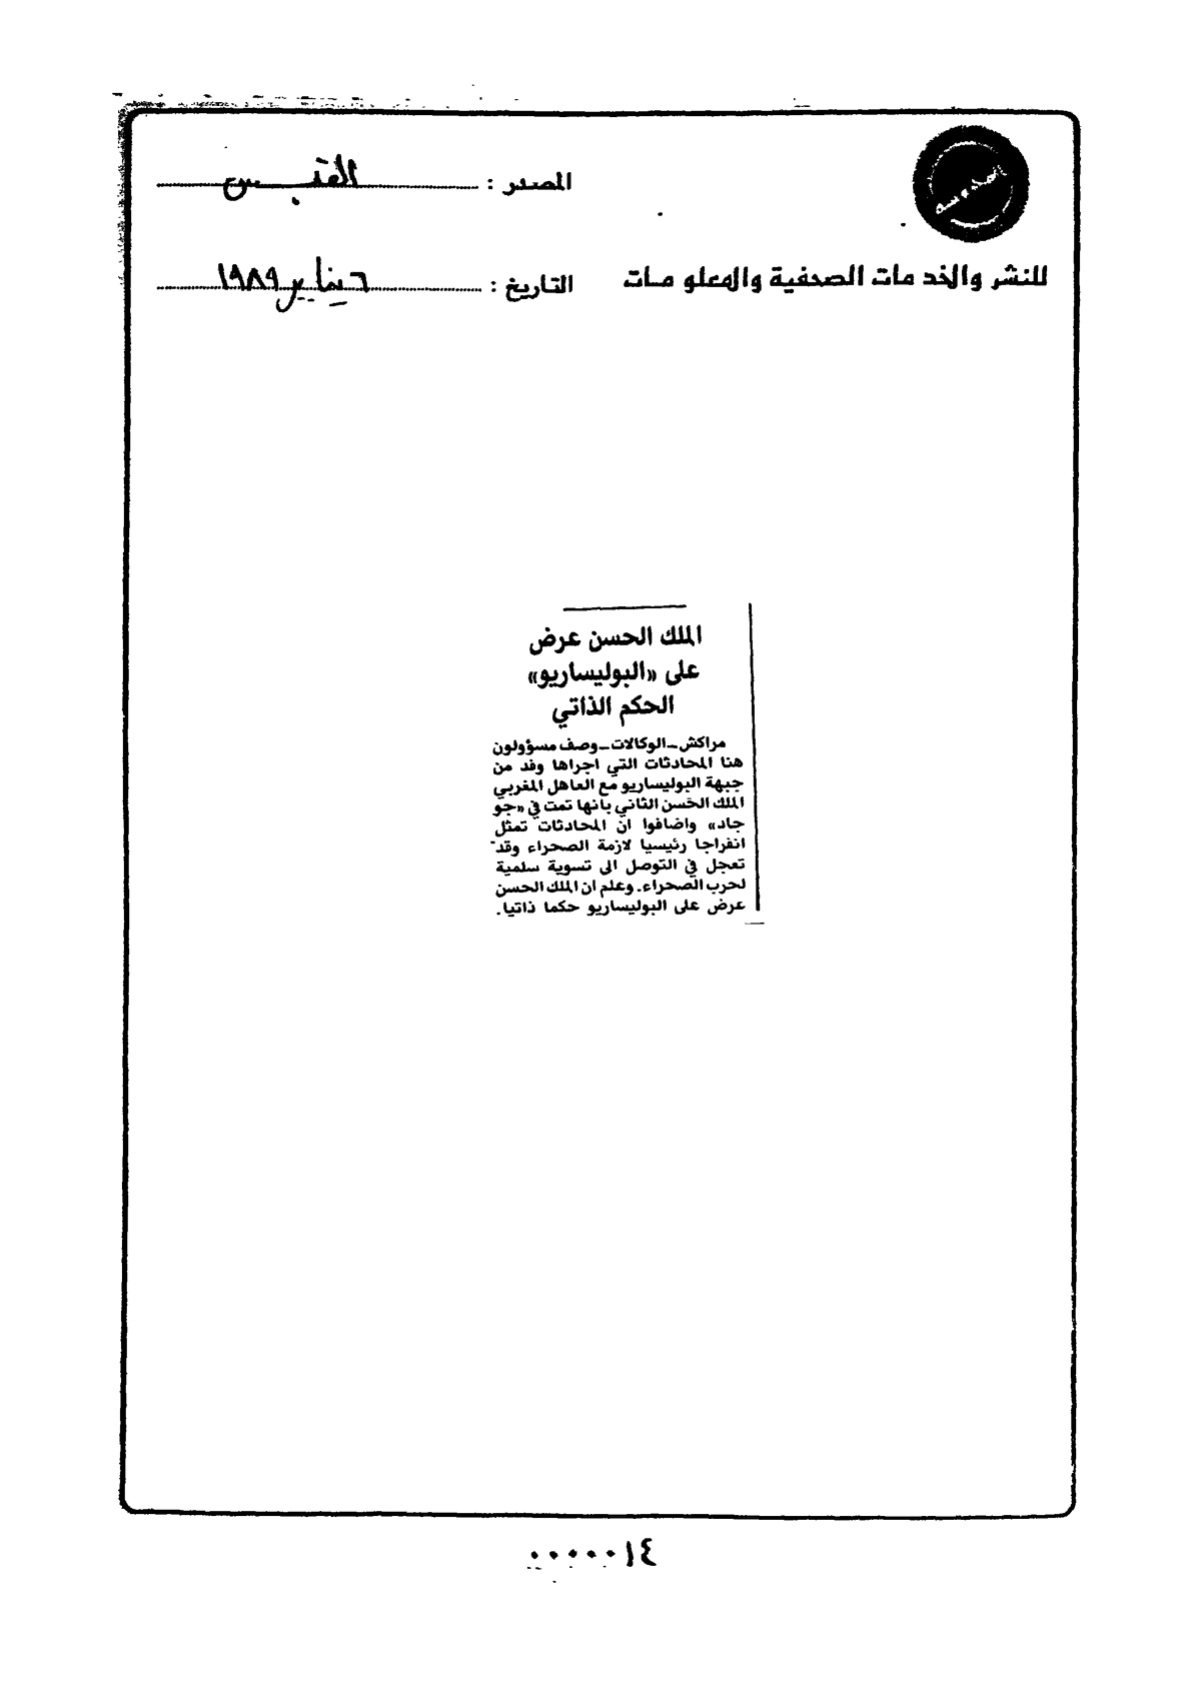 المصدر : القبس
للنشر والخدمات الصحفية والمعلومات
التاريخ : ٦ يناير ١٩٨٩
الملك الحسن عرض
على «البوليساريو»
الحكم الذاتي
مراكش ـ الوكالات ـ وصف مسؤولون
هنا المحادثات التي اجراها وفد من
جبهة البوليساريو مع العاهل المغربي
الملك الحسن الثاني بانها تمت في «جو
جاد» واضافوا ان المحادثات تمثل
انفراجا رئيسيا لازمة الصحراء وقد
تعجل في التوصل الى تسوية سلمية
لحرب الصحراء. وعلم ان الملك الحسن
عرض على البوليساريو حكما ذاتيا.
٠٠٠٠٠١٤